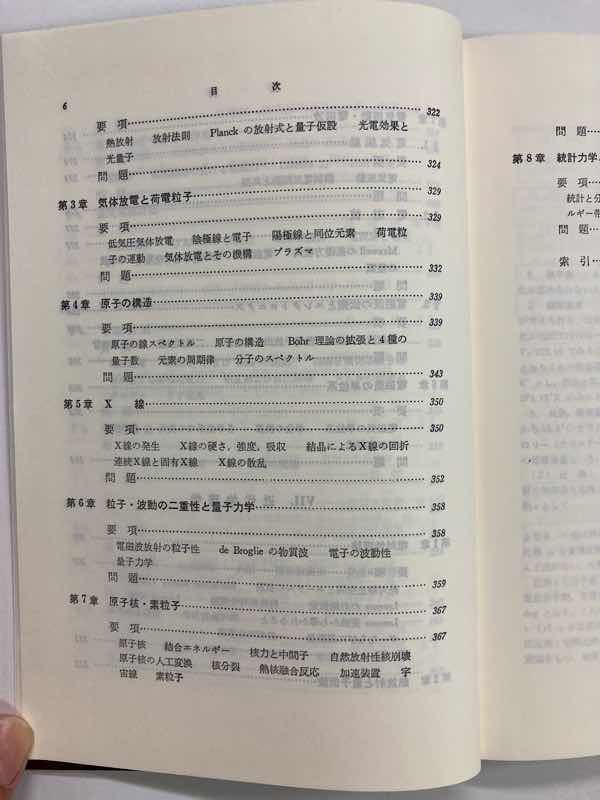 6
目 次
要 項 322
熱放射 放射法則 Planck の放射式と量子仮設 光電効果と
光量子
問 題 324
第3章 気体放電と荷電粒子 329
要 項 329
低気圧気体放電 陰極線と電子 陽極線と同位元素 荷電粒
子の運動 気体放電とその機構 プラズマ
問 題 332
第4章 原子の構造 339
要 項 339
原子の線スペクトル 原子の構造 Bohr 理論の拡張と4種の
量子数 元素の周期律 分子のスペクトル
問 題 343
第5章 X 線 350
要 項 350
X線の発生 X線の硬さ,強度,吸収 結晶によるX線の回折
連続X線と固有X線 X線の散乱
問 題 352
第6章 粒子・波動の二重性と量子力学 358
要 項 358
電磁波放射の粒子性 de Broglie の物質波 電子の波動性
量子力学
問 題 359
第7章 原子核・素粒子 367
要 項 367
原子核 結合エネルギー 核力と中間子 自然放射性核崩壊
原子核の人工変換 核分裂 熱核融合反応 加速装置 宇
宙線 素粒子
問 題
第8章 統計力学
要 項
統計と分
ルギー帯
問 題
索 引